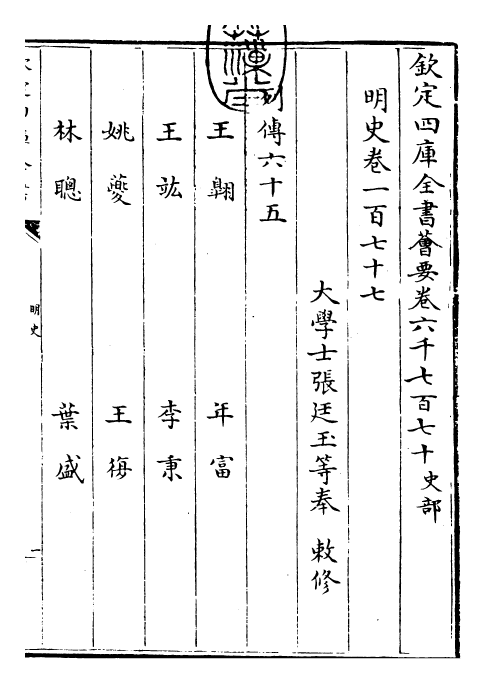 欽定四庫全書薈要卷六千七百七十史部
明史卷一百七十七
大學士張廷玉等奉 敕修
列傳六十五
王翺 年富
王竑 李秉
姚夔 王復
林聰 葉盛
明史
一